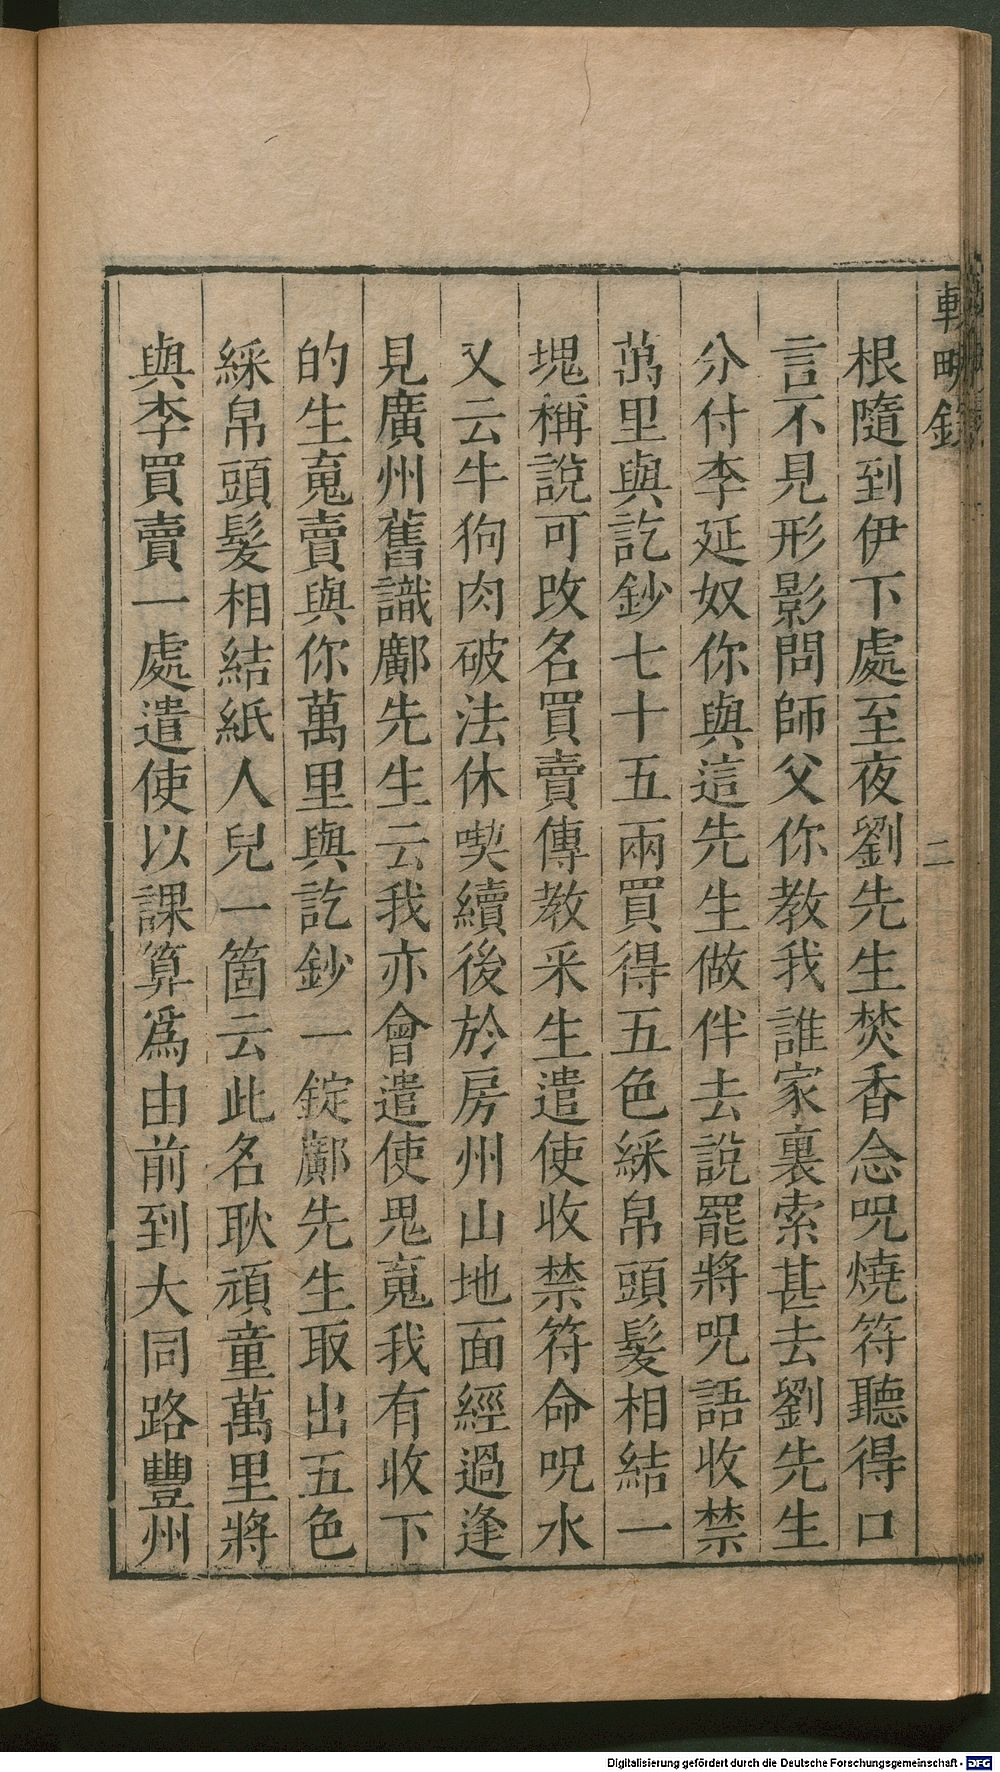 輟畊錄
二
根隨到伊下處至夜劉先生焚香念呪燒符聽得口
言不見形影問師父你教我誰家裏索甚去劉先生
分付李延奴你與這先生做伴去說罷將呪語收禁
萬里與訖鈔七十五兩買得五色綵帛頭髮相結一
塊稱說可改名買賣傳教采生遣使收禁符命呪水
又云牛狗肉破法休喫續後於房州山地面經過逢
見廣州舊識鄺先生云我亦會遣使鬼䰟我有收下
的生䰟賣與你萬里與訖鈔一錠鄺先生取出五色
綵帛頭髮相結紙人兒一箇云此名耿頑童萬里將
與李買賣一處遣使以課算爲由前到大同路豐州
Digitalisierung gefördert durch die Deutsche Forschungsgemeinschaft - DFG